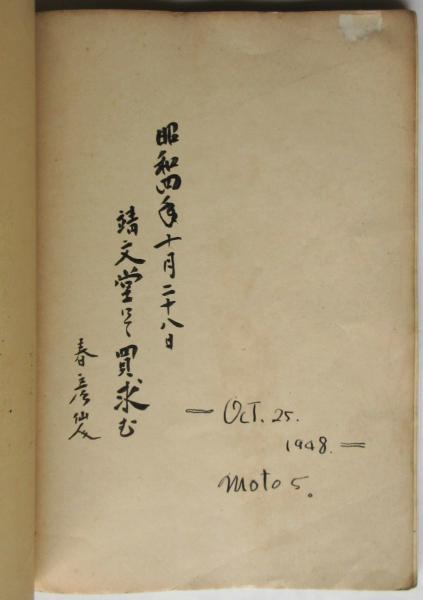 昭和四年十月二十八日
靖文堂にて買求む
春彦仙人
— Oct. 25.
1948. =
moto 5.